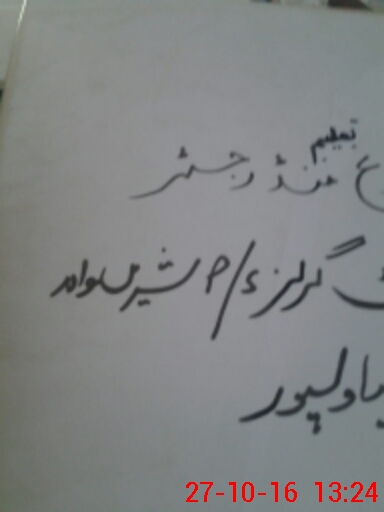 تعلیم
فنڈ رجسٹر
گرلز ء/م شیر
بہاولپور
27-10-16 13:24